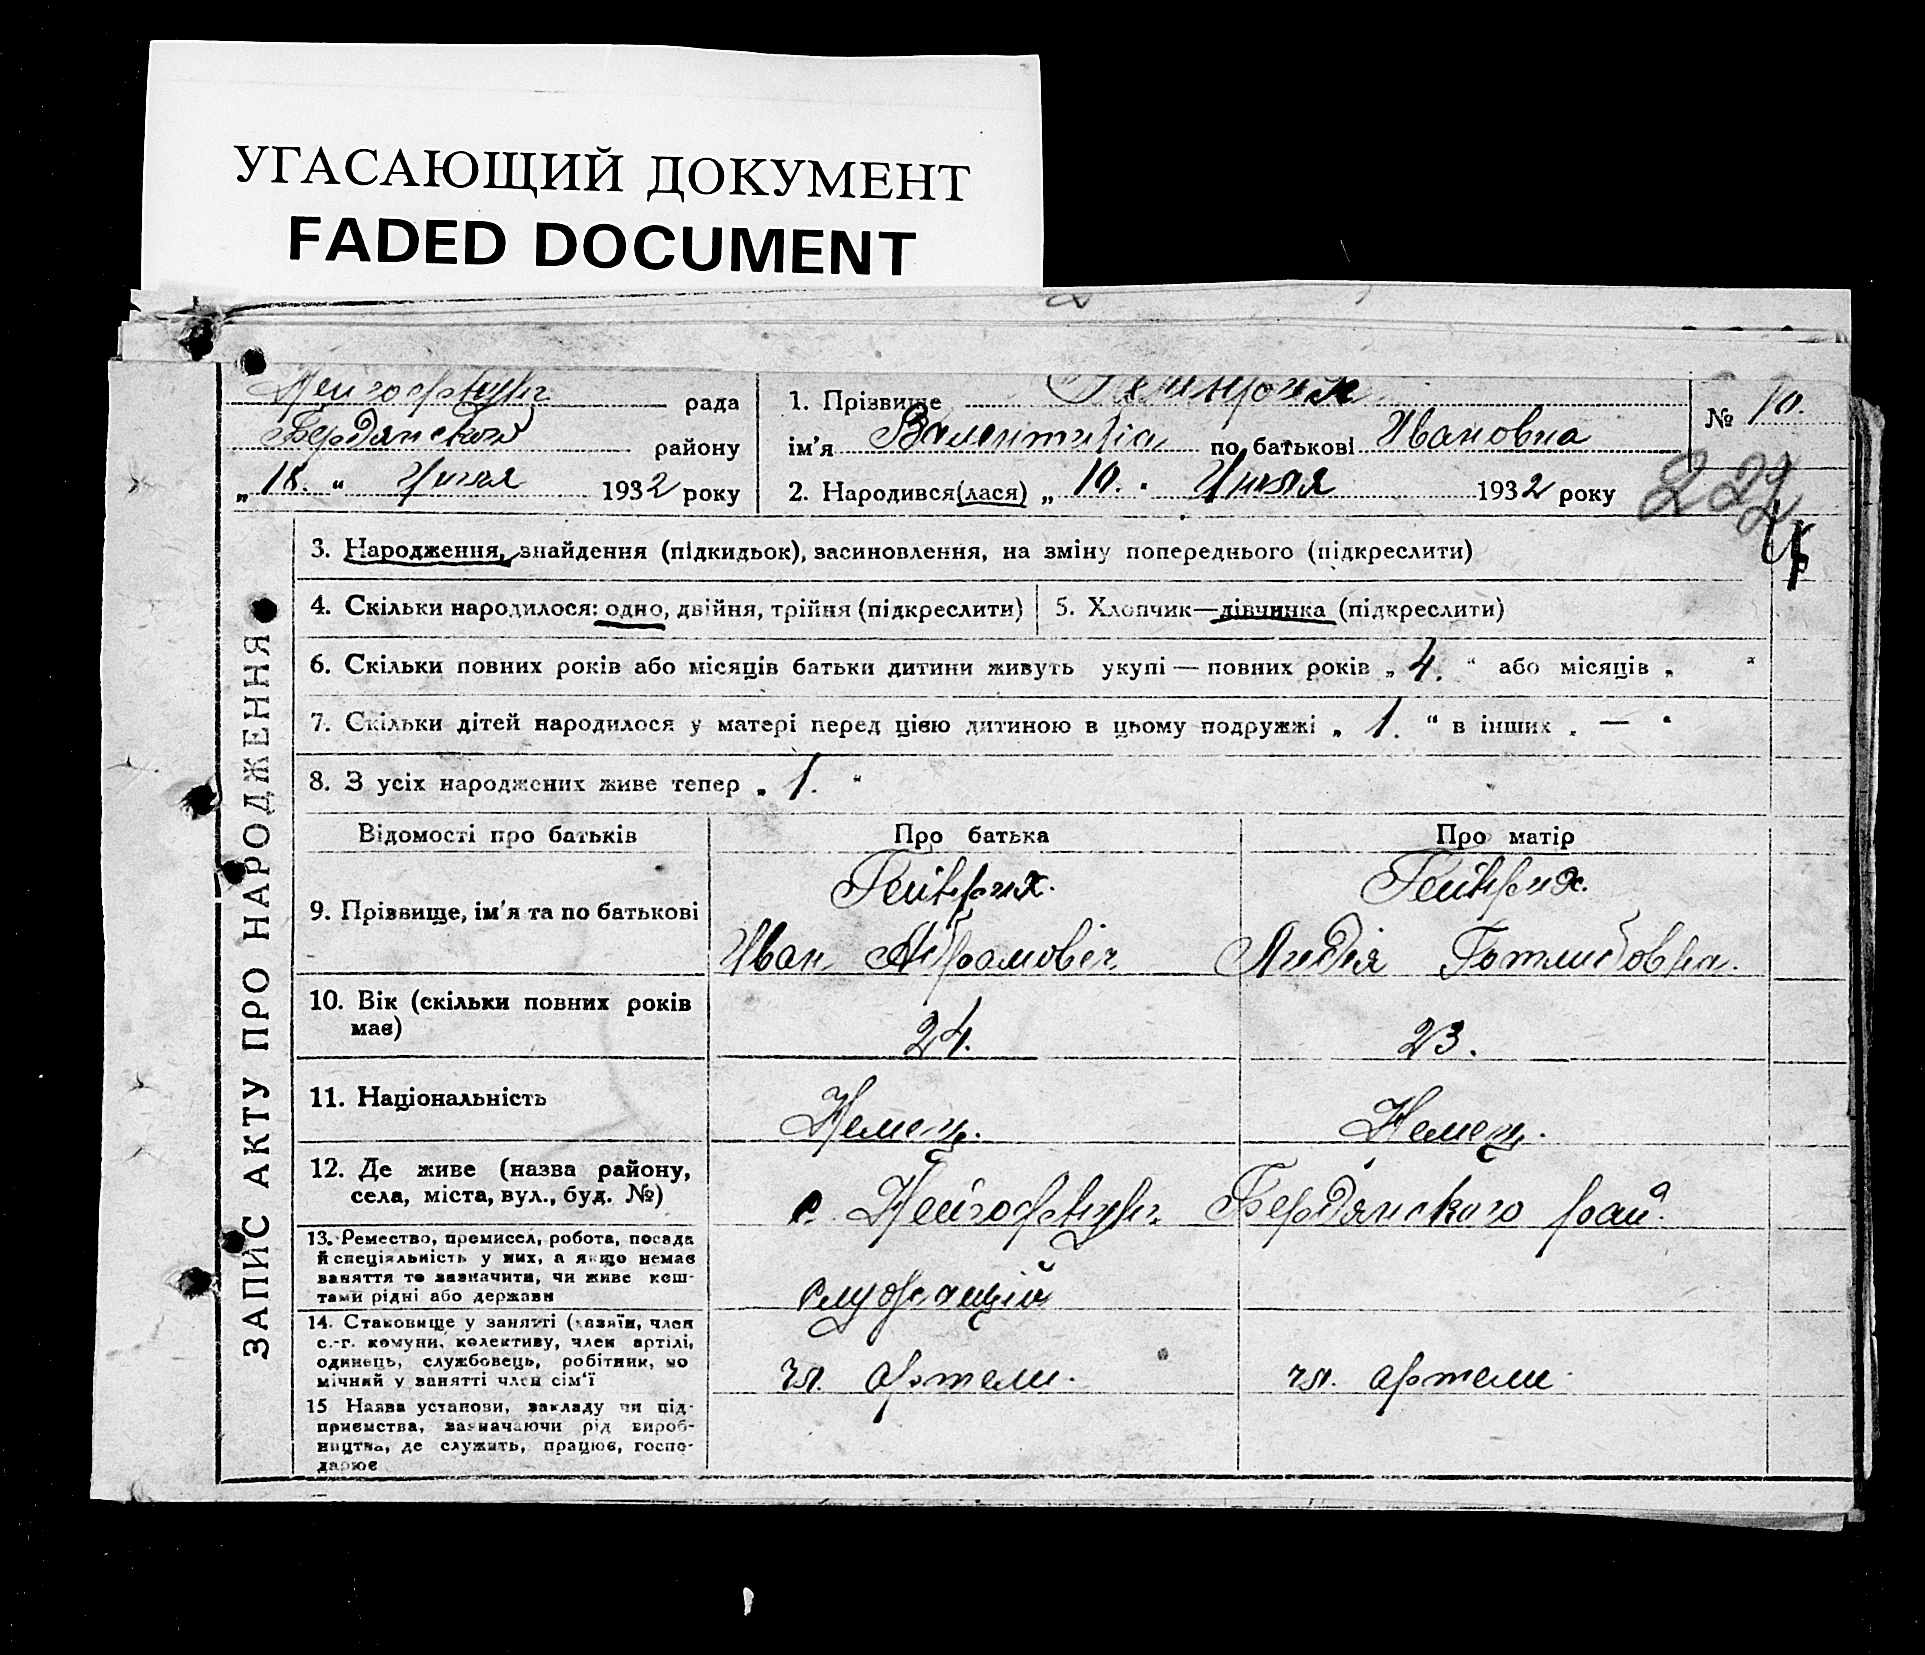 УГАСАЮЩИЙ ДОКУМЕНТ
FADED DOCUMENT
ЗАПИС АКТУ ПРО НАРОДЖЕННЯ
Нейгофнунг рада
Бердянской району
„18.“ Июля 1932 року
1. Прізвище Гейнрих
ім'я Валентина по батькові Ивановна
2. Народився(лася) „10.“ Июля 1932 року
№ 10.
222
3. Народження, знайдення (підкидьок), засиновлення, на зміну попереднього (підкреслити)
4. Скільки народилося: одно, двійня, трійня (підкреслити)
5. Хлопчик—дівчинка (підкреслити)
6. Скільки повних років або місяців батьки дитини живуть укупі — повних років „4.“ або місяців „ “
7. Скільки дітей народилося у матері перед цією дитиною в цьому подружжі „1.“ в інших „—“
8. З усіх народжених живе тепер „1.“
Відомості про батьків Про батька Про матір
9. Прізвище, ім'я та по батькові
Гейнрих. Гейнрих.
Иван Абрамовіч Лидія Готлибовна.
10. Вік (скільки повних років
має)
24. 23.
11. Національність
Немец. Немец.
12. Де живе (назва району,
села, міста, вул., буд. №)
с. Нейгофнунг Бердянского рай.
13. Ремество, промисел, робота, посада
й спеціяльність у них, а якщо немає
заняття то зазначити, чи живе кош-
тами рідні або держави
служащій
14. Становище у занятті (хазяїн, член
с.-г. комуни, колективу, член артілі,
одинець, службовець, робітник, по
мічний у занятті член сім'ї
чл. артели. чл. артели.
15 Назва установи, закладу чи під-
приємства, зазначаючи рід вироб-
ництва, де служить, працює, госпо-
дарює